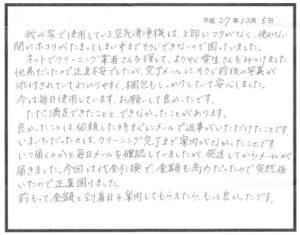 平成27年12月5日
我が家で使用している空気清浄機は、上部にフタがなく、使わない
間にホコリがたまってしまい中までそうじできないので困っていました。
ネットでクリーニング業者さんを探して、ようやく愛生さんをみつけました。
他県だったので正直不安でしたが、完了メールにそうじ前後の写真が
添付されていてわかりやすく、梱包もしっかりしていて安心しました。
今は毎日使用しています。お願いして良かったです。
ただ満足できたことと、できなかったことがあります。
良かったことは依頼した時すぐにメールで返事がいただけたことです。
いまいちだったのは、クリーニング完了まで案内がなかったことです。
いつ届くのかと毎日メールを確認していましたが、発送してからメールが
届きました。今回は代金引換で、金額も高めだったので突然届
いたので正直困りました。
前もって金額と到着日を案内してもらえたら、もっと良かったです。